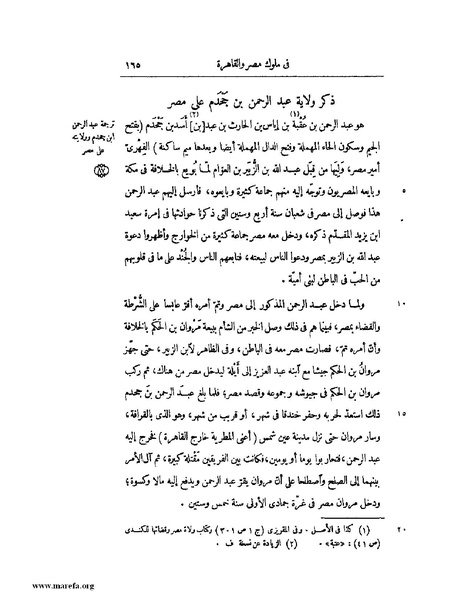 فى ملوك مصر والقاهرة ١٦٥
ذكر ولاية عبد الرحمن بن جَحْدَم على مصر
هو عبد الرحمن بن عُقْبة (١) بن إياس بن الحارث بن عبد [بن] (٢) أسد بن جَحْدَم (بفتح
ترجمة عبد الرحمن ابن جحدم وولايته على مصر
الجيم وسكون الحاء المهملة وفتح الدال المهملة أيضا وبعدها ميم ساكنة) الفِهْرىّ
أمير مصر، وَلِيَها من قِبَل عبد الله بن الزُّبَير بن العوّام لمّا بُويع بالخلافة فى مكة
٥ وبايعه المصريون وتوجّه إليه منهم جماعة كثيرة وبايعوه، فأرسل إليهم عبد الرحمن
هذا فوصل إلى مصر فى شعبان سنة أربع وستين التى ذكرنا حوادثها فى إمرة سعيد
ابن يزيد المقدّم ذكره، ودخل معه مصر جماعة كثيرة من الخوارج وأظهروا دعوة
عبد الله بن الزبير بمصر ودعوا الناس لبيعته، فتابعهم الناس والجُنْد على ما فى قلوبهم
من الحبّ فى الباطن لبنى أميّة .
١٠ ولما دخل عبد الرحمن المذكور إلى مصر وتمّ أمره أقرّ عابسا على الشُّرْطة
والقضاء بمصر، فبينا هم فى ذلك وصل الخبر من الشأم ببيعة مَرْوان بن الحَكَم بالخلافة
وأنّ أمره تمّ، فصارت مصر معه فى الباطن، وفى الظاهر لابن الزبير، حتى جهّز
مروانُ بن الحكم جيشا مع آبنه عبد العزيز إلى أَيْلة ليدخل مصر من هناك، ثم ركب
مروان بن الحكم فى جيوشه وجموعه وقصد مصر؛ فلما بلغ عبد الرحمن بن جحدم
١٥ ذلك استعدّ لحربه وحفر خندقا فى شهر، أو قريب من شهر، وهو الذى بالقرافة،
وسار مروان حتى نزل مدينة عين شمس (أعنى المطرية خارج القاهرة) فخرج إليه
عبد الرحمن، فتحاربوا يوما أو يومين، فكانت بين الفريقين مَقْتلة كبيرة، ثم آل الأمر
بينهما إلى الصلح وآصطلحا على أنّ مروان يقرّ عبد الرحمن ويدفع إليه مالا وكسوة؛
ودخل مروان مصر فى غرّة جمادى الأولى سنة خمس وستين .
٢٠ (١) كذا فى الأصل . وفى المقريزى (ج ١ ص ٣٠١) وكتاب ولاة مصر وقضاتها للكندى
(ص ٤١): «عتبة» . (٢) الزيادة عن نسخة ف .
www.marefa.org